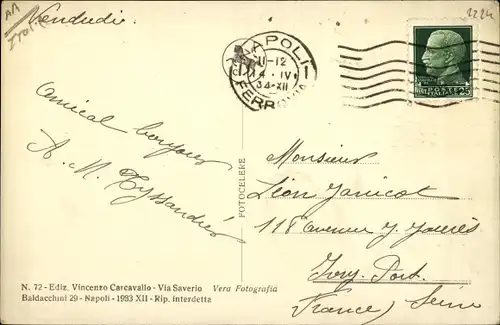 AA
Vendredi.
2224
NAPOLI
11-12
4 · IV
34-XII
FERROVIA
POSTE ITALIANE 25
Amical bonjour
A. M. Tyssandier
FOTOCELERE
Monsieur
Léon Janicot
118 avenue J. Jaurès
Ivry. Port.
(France) Seine
N. 72 - Ediz. Vincenzo Carcavallo - Via Saverio Vera Fotografia
Baldacchini 29 - Napoli - 1933 XII - Rip. interdetta